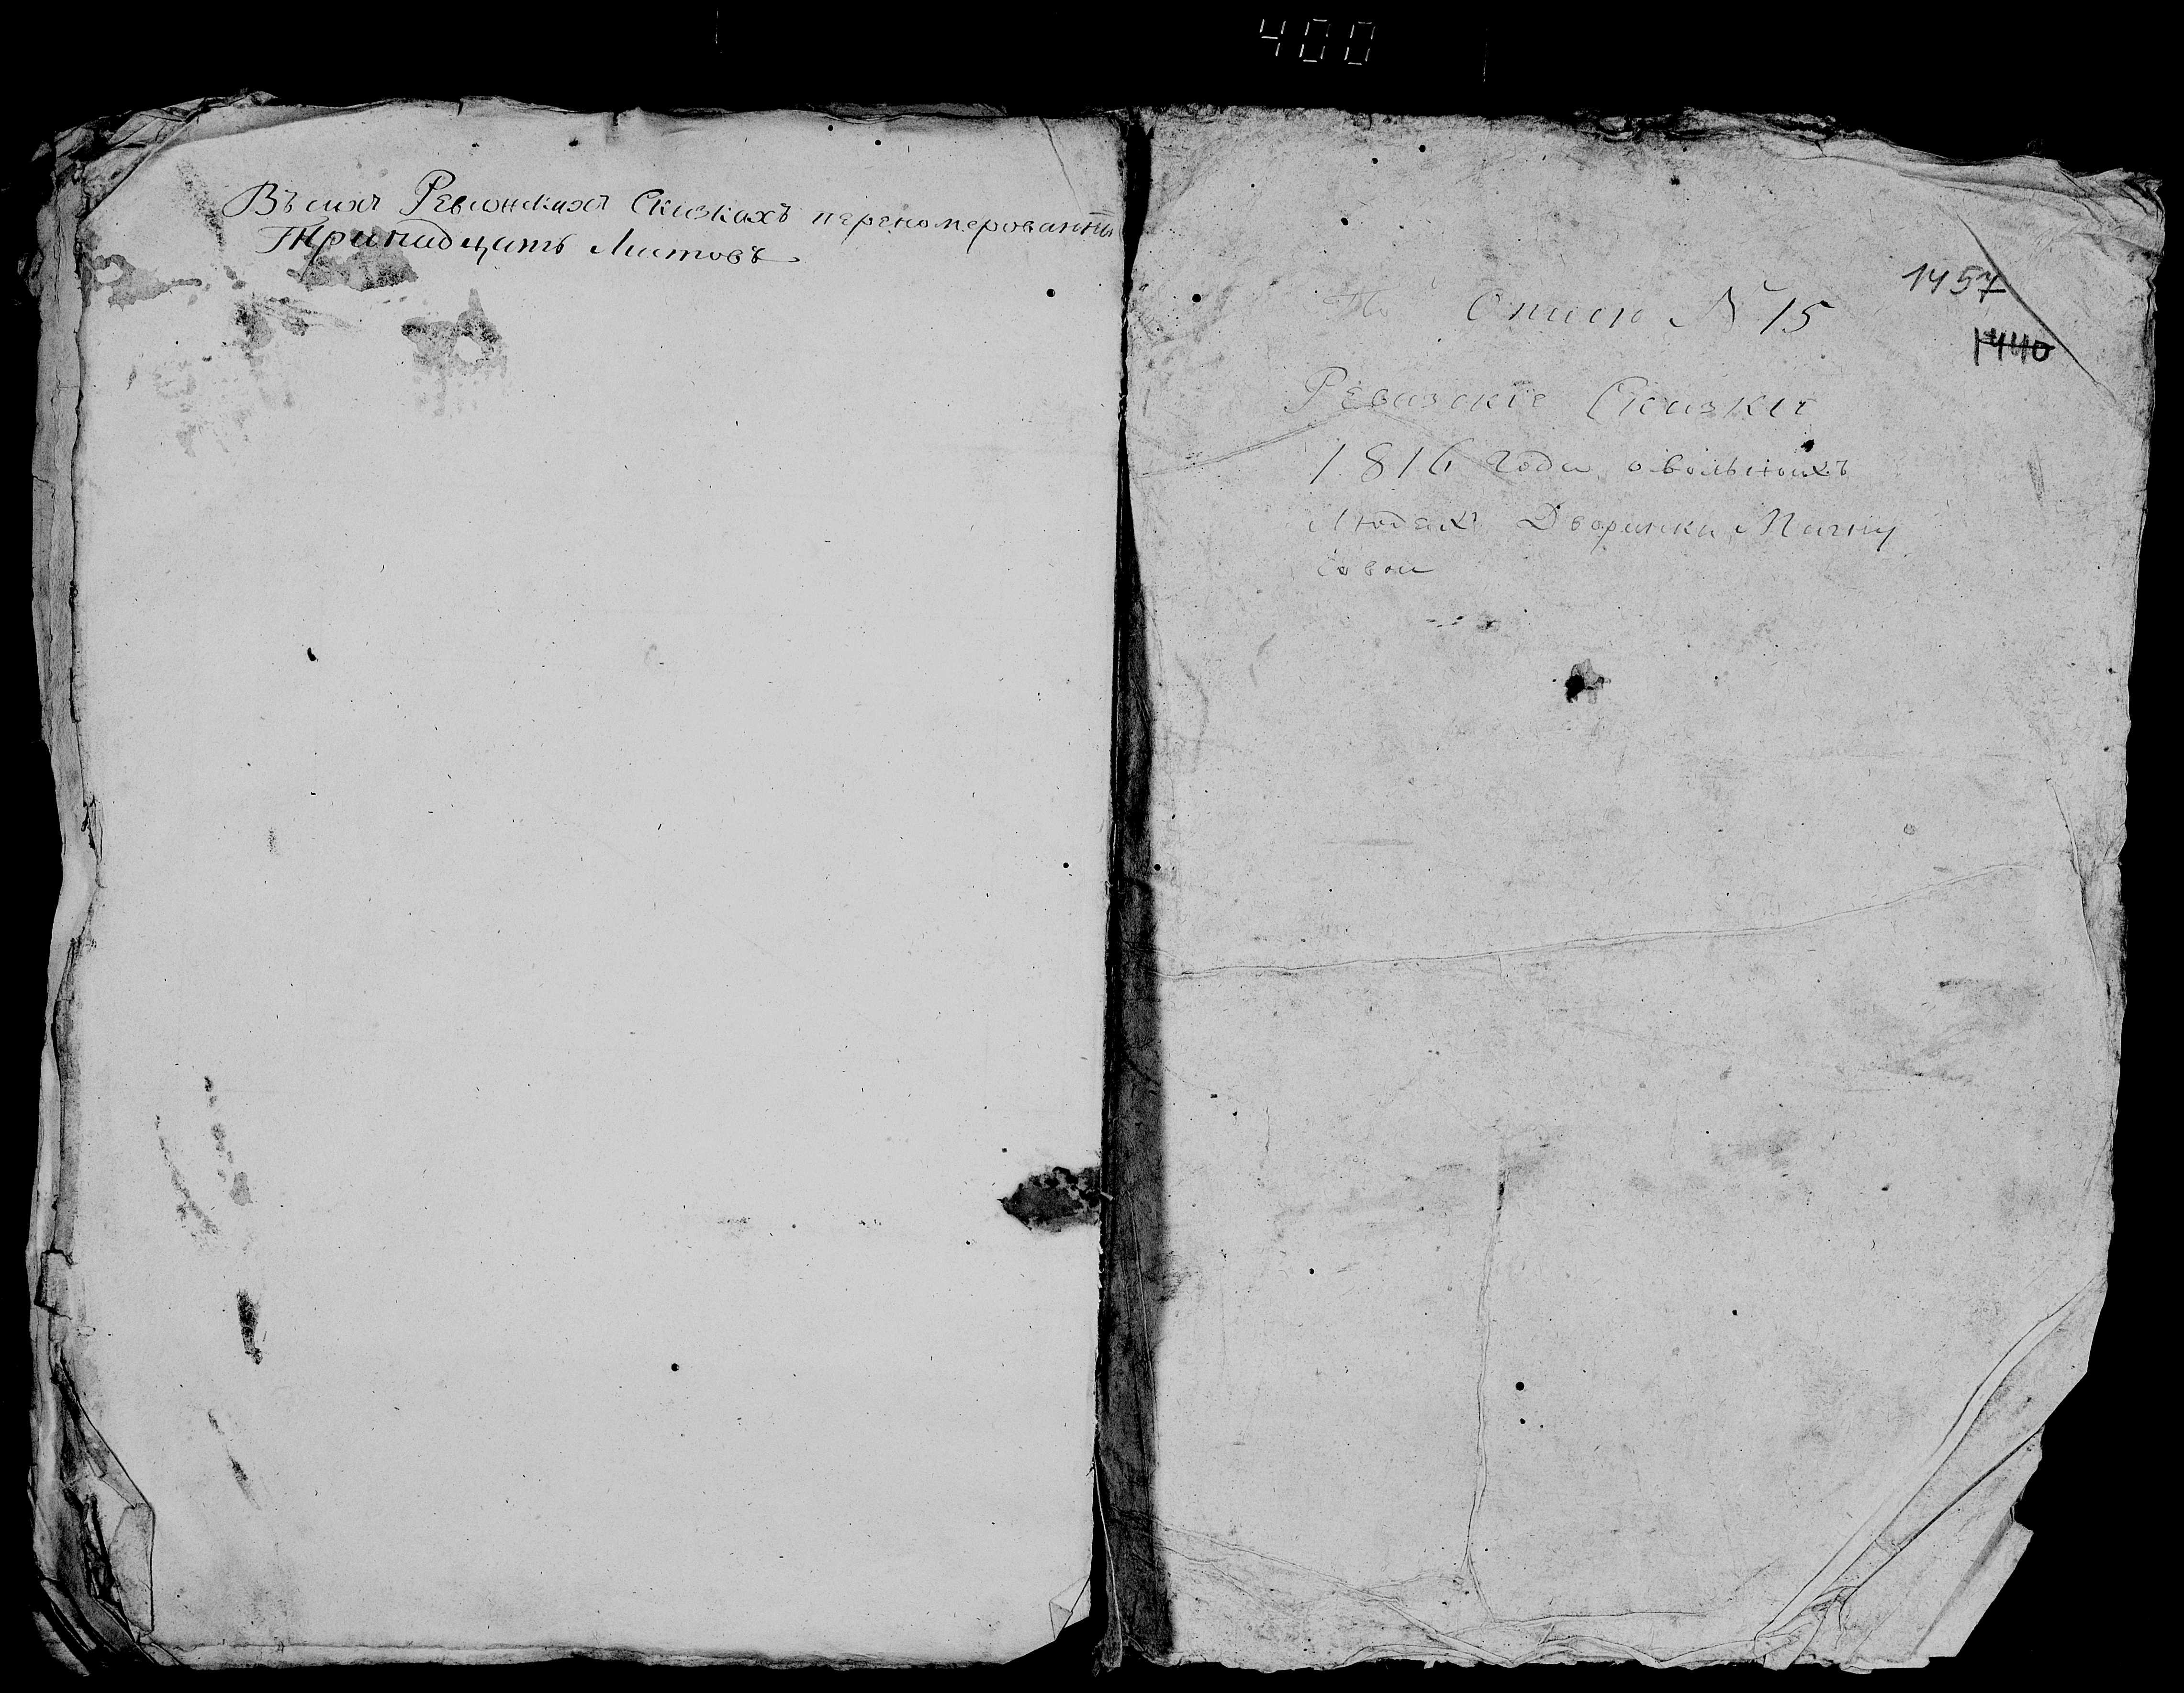 400
Въ сихъ Ревижскихъ Сказкахъ перономерованны
Тринадцать Листовъ
1457
По Описи № 15
1440
Ревизскіе Сказки
1816 года о вольныхъ
Людяхъ Дворянки Магну
совои